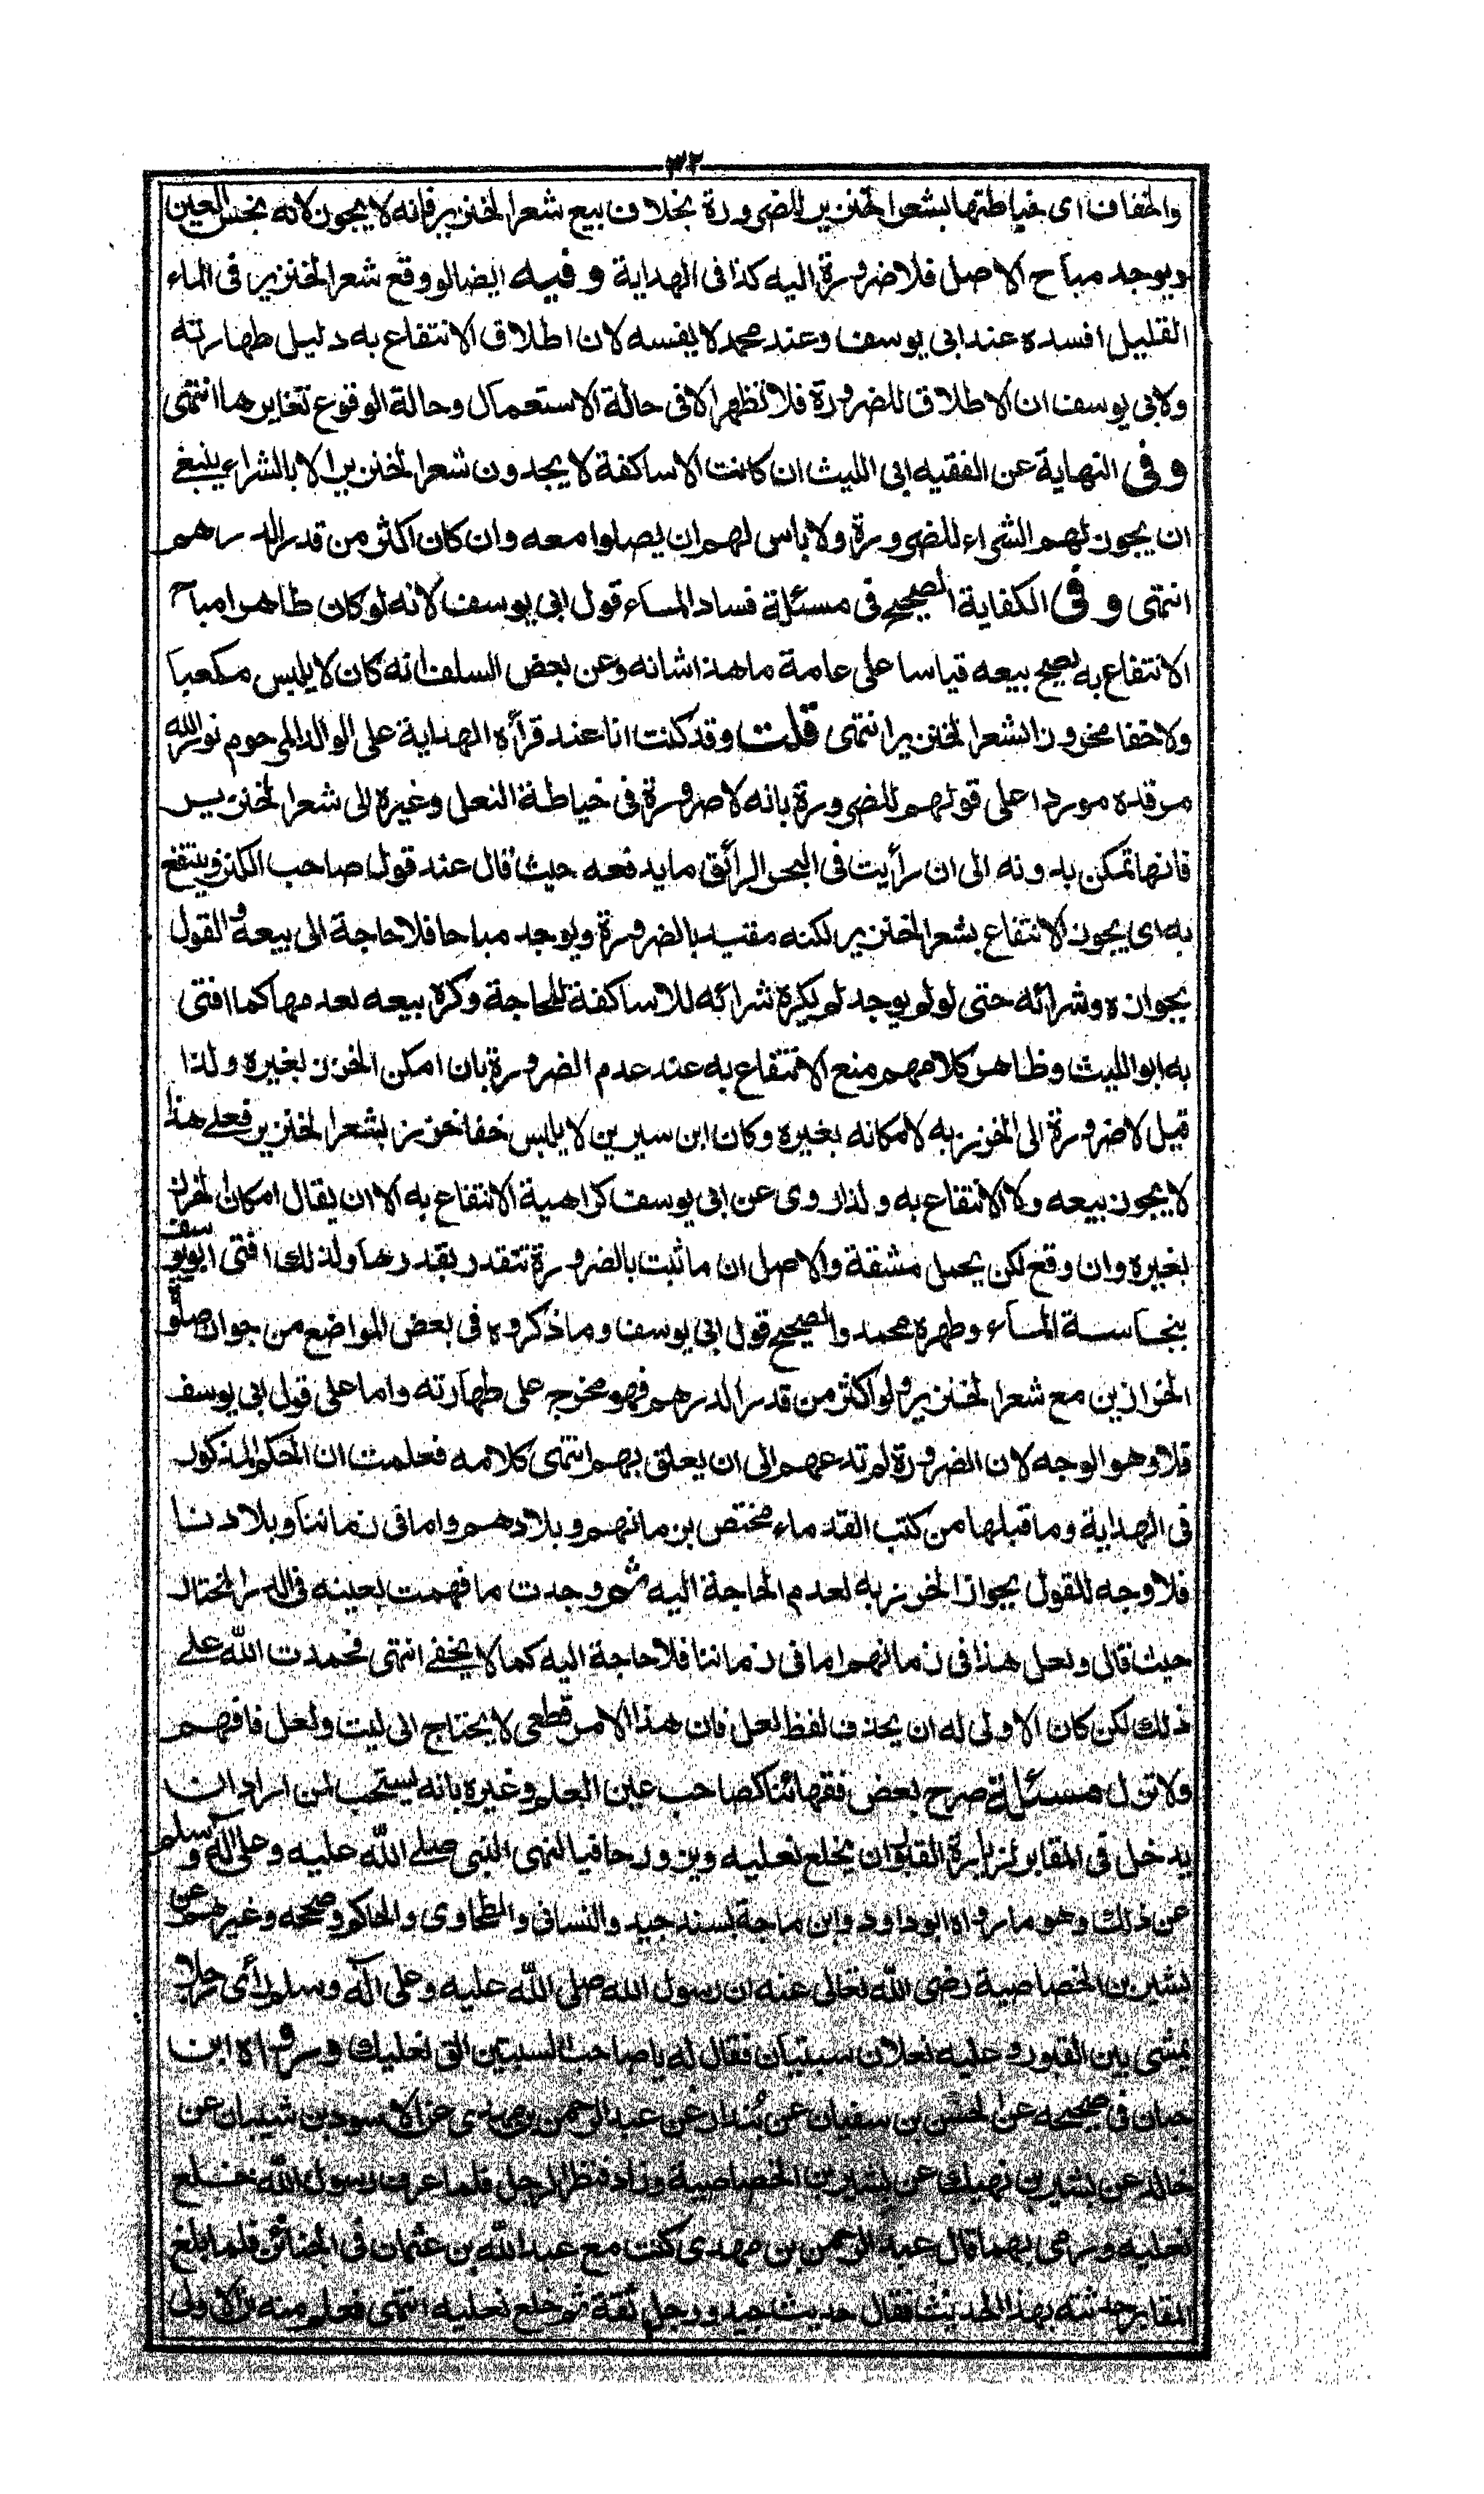 ٣٢
والخفاف اى خياطتها بشعر الخنزير للضرورة بخلاف بيع شعر الخنزير فانه لا يجوز لانه نجس العين
ويوجد مباح الاصل فلا ضرورة اليه كذا فى الهداية وفيه ايضا لو وقع شعر الخنزير فى الماء
القليل افسده عند ابى يوسف وعند محمد لا يفسه لان اطلاق الانتفاع به دليل طهارته
ولابى يوسف ان الاطلاق للضرورة فلا تظهر الا فى حالة الاستعمال وحالة الوقوع تغايرها انتهى
وفى النهاية عن الفقيه ابى الليث ان كانت الاساكفة لا يجدون شعر الخنزير الا بالشراء ينبغے
ان يجوز لهم الشراء للضرورة ولا باس لهم ان يصلوا معه وان كان اكثر من قدر الدرهم
انتهى وفى الكفاية الصحيح فى مسئلة فساد الماء قول ابى يوسف لانه لو كان طاهرا مباح
الانتفاع به يصح بيعه قياسا على عامة ما هذا شانه وعن بعض السلف انه كان لا يلبس مكعبا
ولا خفا مخروزا بشعر الخنزير انتهى قلت وقد كنت انا عند قرأة الهداية على الوالد المرحوم نور الله
مرقده موردا على قولهم للضرورة بانه لا ضرورة فى خياطة النعل وغيره الى شعر الخنزير
فانها تمكن بدونه الى ان رأيت فى البحر الرائق ما يدفعه حيث قال عند قول صاحب الكنز وينتفع
به اى يجوز الانتفاع بشعر الخنزير لكنه مقيد بالضرورة ويوجد مباحا فلا حاجة الى بيعه والقول
بجوازه وشرائه حتى لو لم يوجد لم يكره شرائه للاساكفة للحاجة وكره بيعه لعدمها كما افتى
به ابو الليث وظاهر كلامهم منع الانتفاع به عند عدم الضرورة بان امكن الخرز بغيره ولذا
قيل لا ضرورة الى الخرز به لامكانه بغيره وكان ابن سيرين لا يلبس خفا خرز بشعر الخنزير فعلے هذا
لا يجوز بيعه ولا الانتفاع به ولذا روى عن ابى يوسف كراهية الانتفاع به الا ان يقال امكان الخرز
بغيره وان وقع لكن يحمل مشقة والاصل ان ما ثبت بالضرورة تتقدر بقدرها ولذلك افتى ابو يوسف
بنجاسة الماء وطهره محمد والصحيح قول ابى يوسف وما ذكروه فى بعض المواضع من جواز صلوة
الخرازين مع شعر الخنزير ولو اكثر من قدر الدرهم فهو مخرج على طهارته واما على قول ابى يوسف
فلا وهو الوجه لان الضرورة لم تدعهم الى ان يعلق بهم انتهى كلامه فعلمت ان الحكم المذكور
فى الهداية وما قبلها من كتب القدماء مختص بزمانهم وبلادهم واما فى زماننا وبلادنا
فلا وجه للقول بجواز الخرز به لعدم الحاجة اليه ثم وجدت ما فهمت بعينه فى الدر المختار
حيث قال ولعل هذا فى زمانهم اما فى زماننا فلا حاجة اليه كما لا يخفے انتهى فحمدت الله علے
ذلك لكن كان الاولى له ان يحذف لفظ لعل فان هذا الامر قطعى لا يحتاج الى ليت ولعل فافهم
ولا تزل مسئلة صرح بعض فقهائنا كصاحب عين العلم وغيره بانه يستحب لمن اراد ان
يدخل فى المقابر لزيارة القبور ان يخلع نعليه ويزور حافيا لنهى النبى صلے الله عليه وعلى آله وسلم
عن ذلك وهو ما رواه ابو داود وابن ماجة بسند جيد والنسائى والطحاوى والحاكم وصححه وغيرهم عن
بشير بن الخصاصية رضى الله تعالى عنه ان رسول الله صلى الله عليه وعلى آله وسلم رأى رجلا
يمشى بين القبور وعليه نعلان سبتيان فقال له يا صاحب السبتين الق نعليك ورواه ابن
حبان فى صحيحه عن الحسن بن سفيان عن بندار عن عبد الرحمن بن مهدى عن الاسود بن شيبان عن
خالد عن بشير بن نهيك عن بشير بن الخصاصية وزاد فنظر الرجل فلما عرف رسول الله خلع
نعليه ورمى بهما قال عبد الرحمن بن مهدى كنت مع عبد الله بن عثمان فى الجنائز فلما بلغ
المقابر حدثته بهذا الحديث فقال حديث جيد ورجل ثقة ثم خلع نعليه انتهى فعلم منه ان الاولى